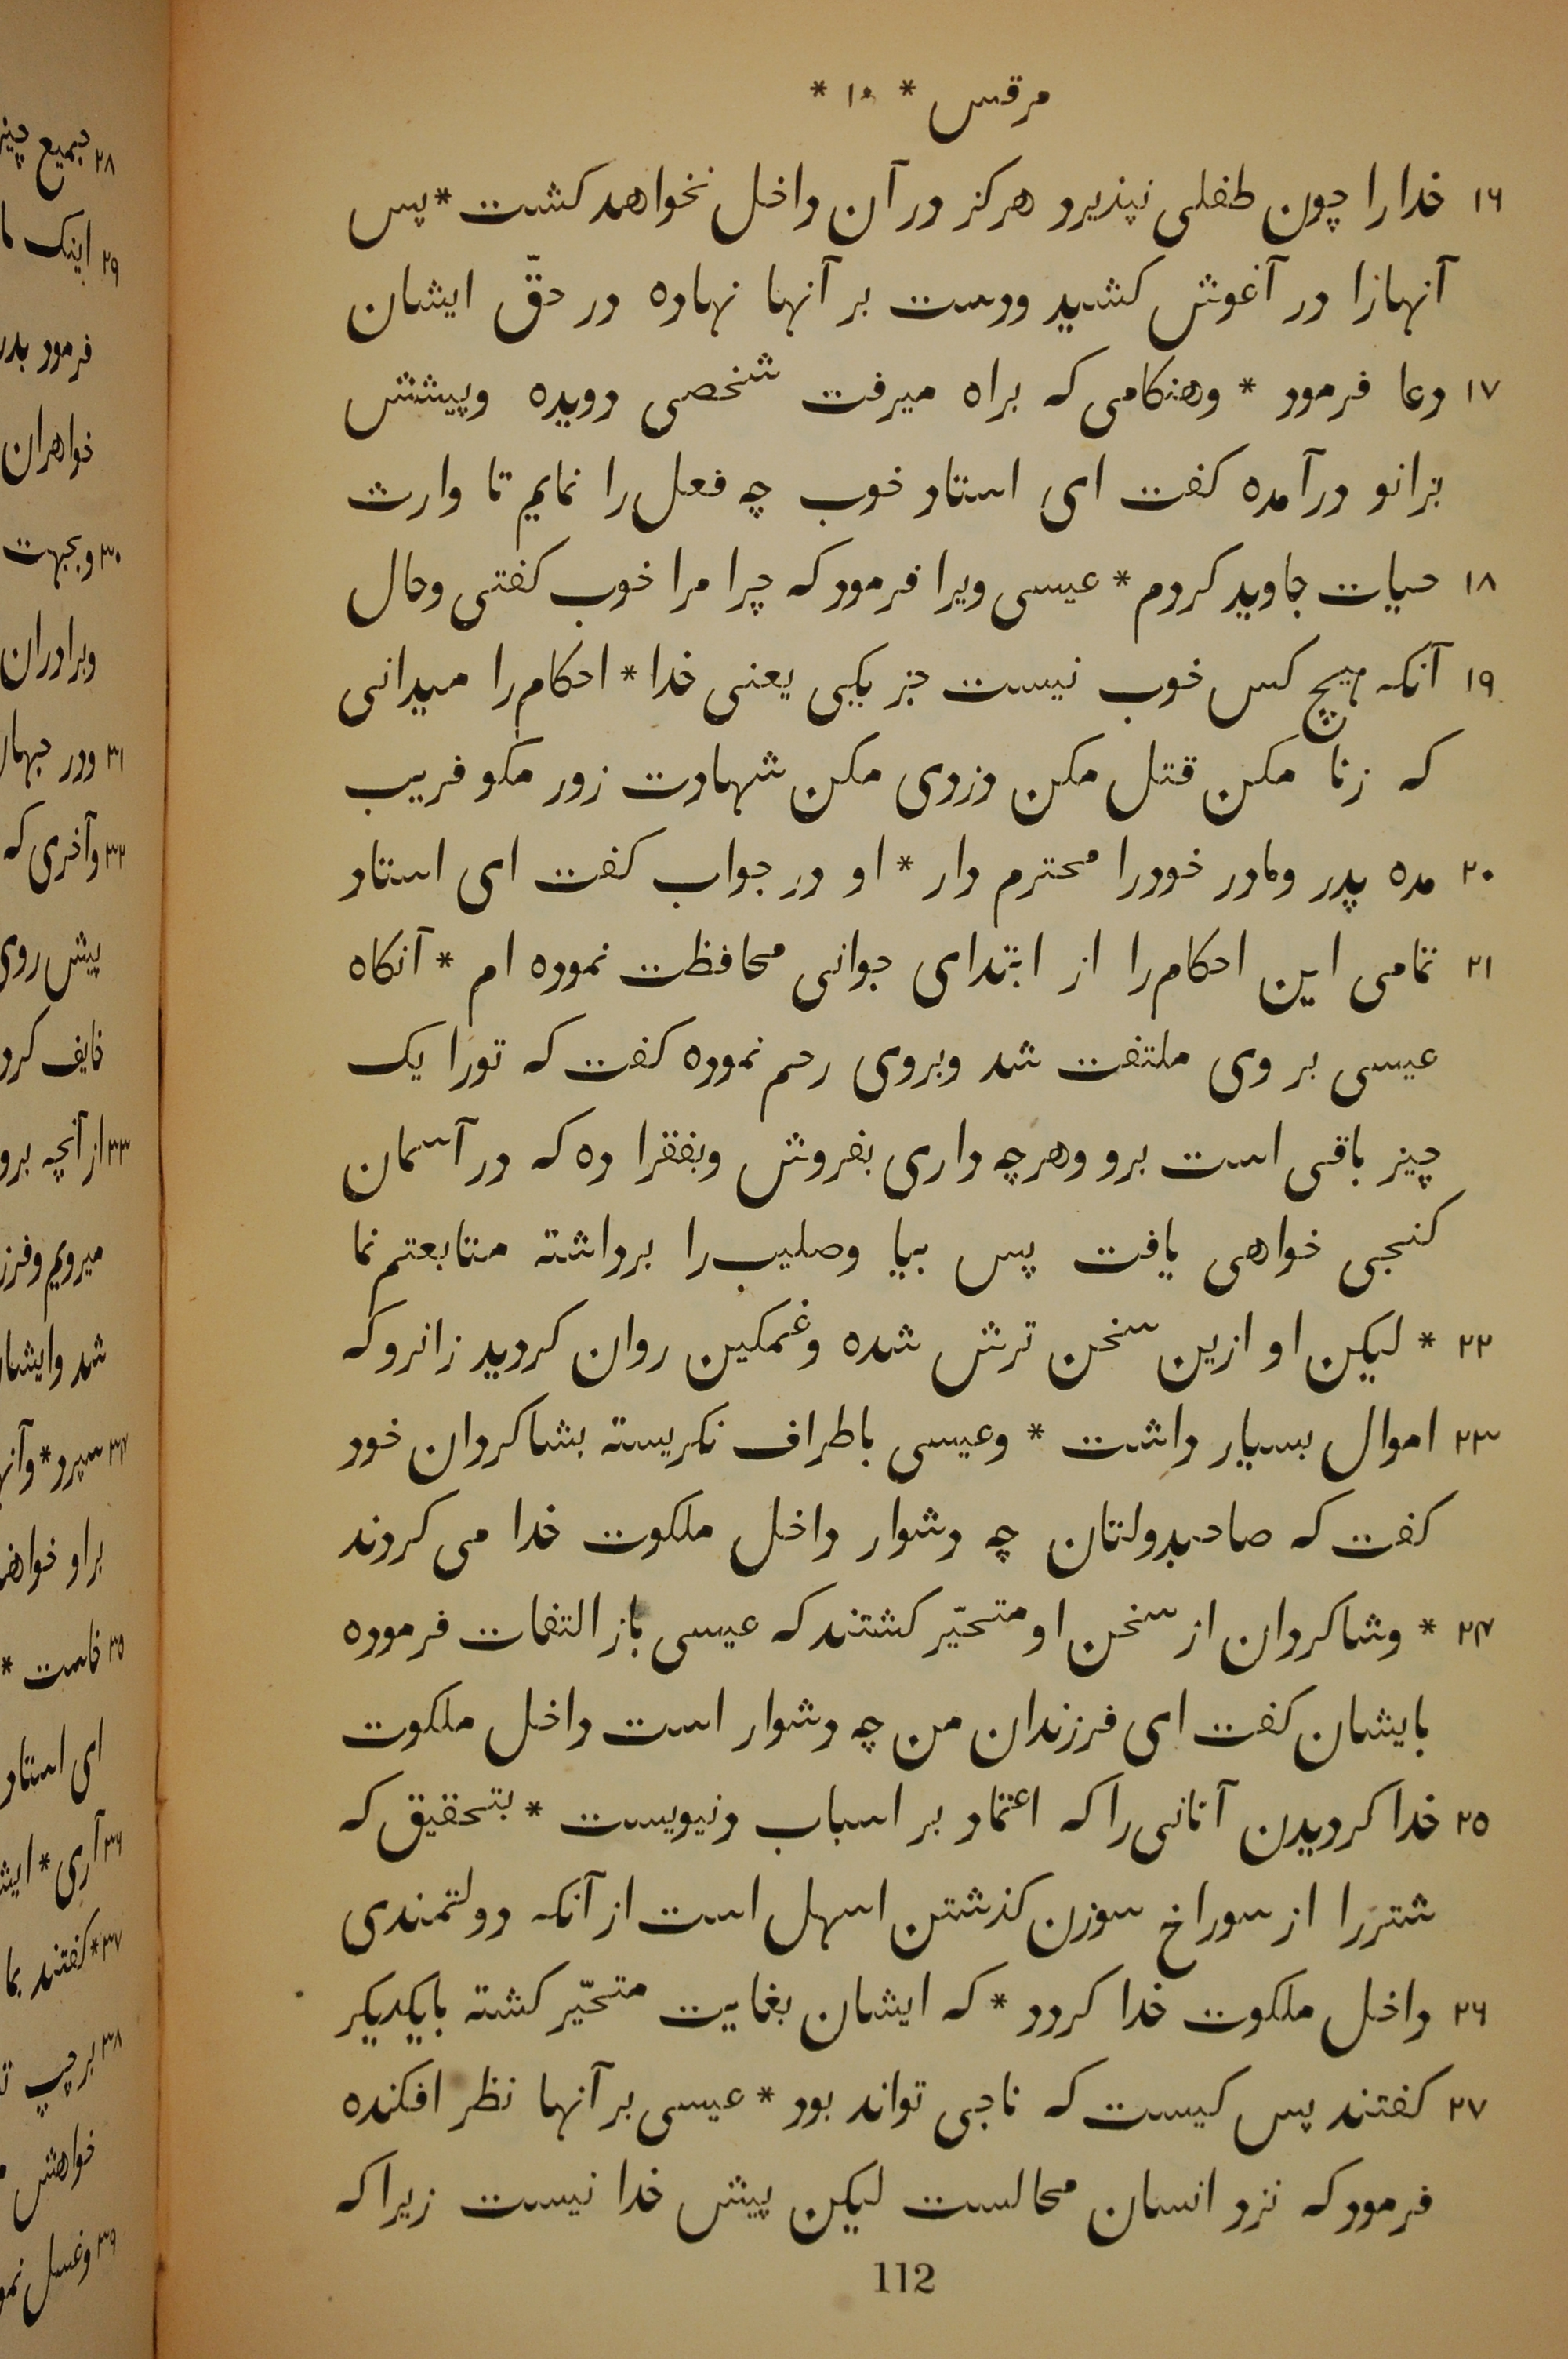 مرقس * ۱۰ *
۱۶ خدارا چون طفلی نپذیرد هرکز در آن داخل نخواهد کشت * پس
آنهازا در آغوش کشید ودست بر آنها نهاده در حقّ ایشان
۱۷ دعا فرمود * وهنکامی که براه میرفت شخصی دویده وپیشش
بزانو درآمده کفت ای استاد خوب چه فعل را نمایم تا وارث
۱۸ حیات جاوید کردم * عیسی ویرا فرمود که چرا مرا خوب کفتی وحال
۱۹ آنکه هیچ کس خوب نیست جز یکی یعنی خدا * احکام را میدانی
که زنا مکن قتل مکن دزدی مکن شهادت زور مکو فریب
۲۰ مده پدر ومادر خودرا محترم دار * او در جواب کفت ای استاد
۲۱ تمامی این احکام را از ابتدای جوانی محافظت نموده ام * آنکاه
عیسی بر وی ملتفت شد وبروی رحم نموده کفت که تورا یک
چیز باقی است برو وهرچه داری بفروش وبفقرا ده که در آسمان
کنجی خواهی یافت پس بیا وصلیب را برداشته متابعتم نما
۲۲ * لیکن او ازین سخن ترش شده وغمکین روان کردید زانرو که
۲۳ اموال بسیار داشت * وعیسی باطراف نکریسته بشاکردان خود
کفت که صاحبدولتان چه دشوار داخل ملکوت خدا می کردند
۲۴ * وشاکردان از سخن او متحیّر کشتند که عیسی باز التفات فرموده
بایشان کفت ای فرزندان من چه دشوار است داخل ملکوت
۲۵ خدا کردیدن آنانی را که اعتماد بر اسباب دنیویست * بتحقیق که
شتررا از سوراخ سوزن کذشتن اسهل است از آنکه دولتمندی
۲۶ داخل ملکوت خدا کردد * که ایشان بغایت متحیّر کشته بایکدیکر
۲۷ کفتند پس کیست که ناجی تواند بود * عیسی بر آنها نظر افکنده
فرمود که نزد انسان محالست لیکن پیش خدا نیست زیرا که
112
۲۸ جمیع
۲۹ اینک
فرمود
خواهران
۳۰ وبجهت
وبرادران
۳۱ ودر
۳۲ وآخری که
پیش روی
خایف
۳۳ از آنچه
میرویم
شد
۳۴ سپرد *
بر او
۳۵ خاست *
ای استاد
۳۶ آری *
۳۷ * کفتند
۳۸ بر چپ
خواهش
۳۹ وغسل